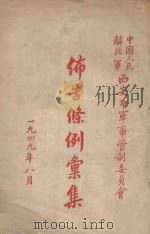 中國人民
解放軍
西安市軍事管制委員會
佈告條例彙集
一九四九年八月